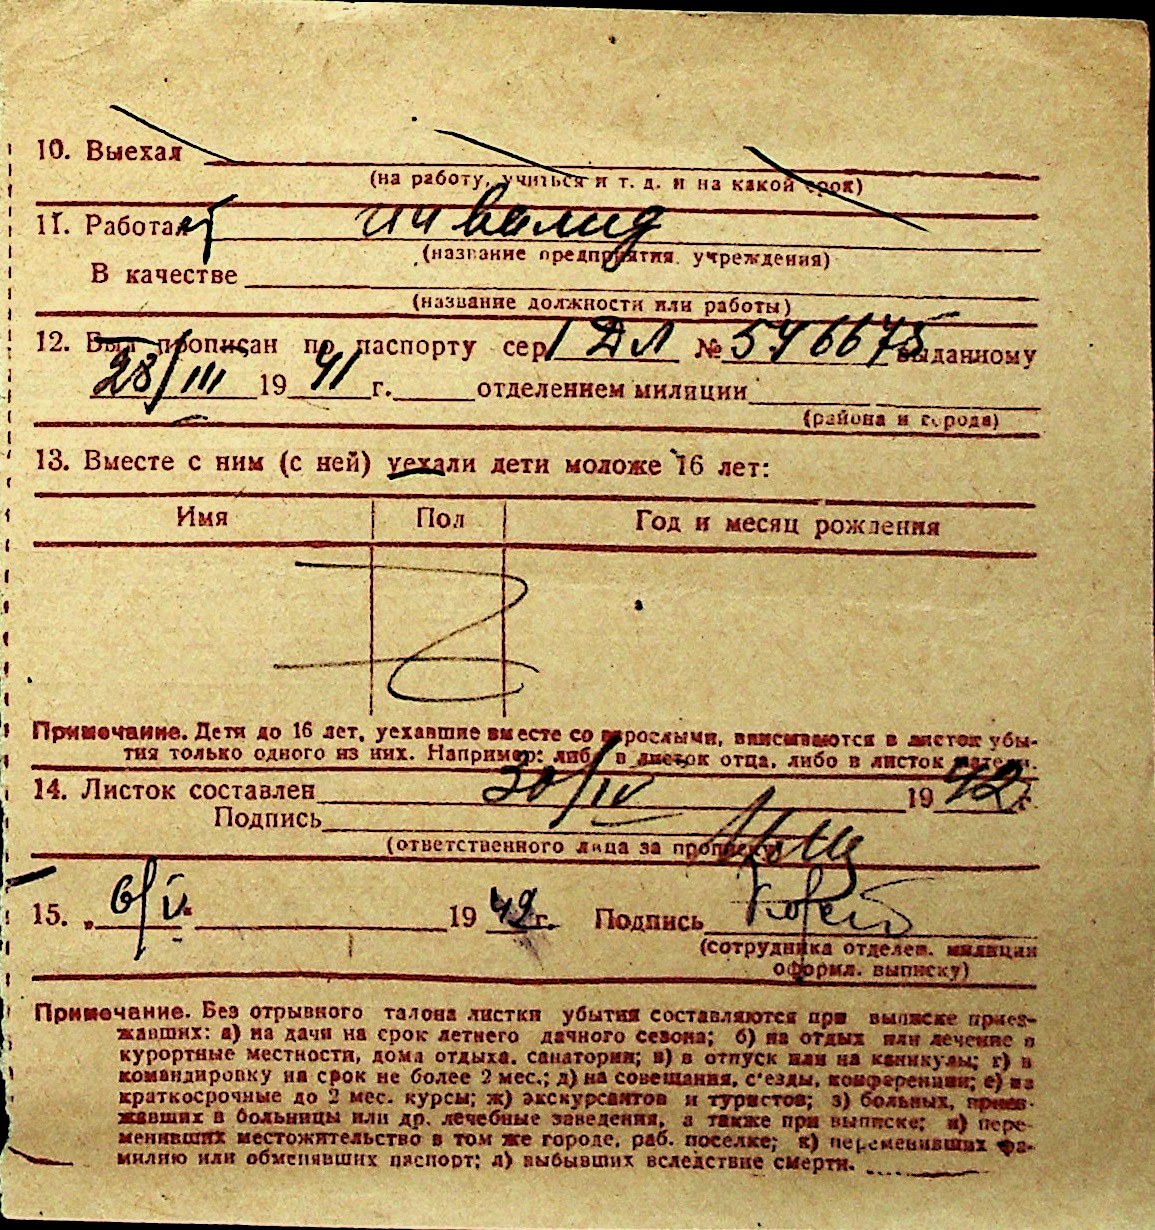 10. Выехал
(на работу, учиться и т. д. и на какой срок)
11. Работал инвалид
(название предприятия, учреждения)
В качестве
(название должности или работы)
12. Был прописан по паспорту сер. 1 ДЛ № 546675 выданному
28/III 19 41 г. отделением милиции
(района и города)
13. Вместе с ним (с ней) уехали дети моложе 16 лет:
Имя Пол Год и месяц рождения
Примечание. Дети до 16 лет, уехавшие вместе со взрослыми, вписываются в листок убы-
тия только одного из них. Например: либо в листок отца, либо в листок матери.
14. Листок составлен 30/IV 19 42 г.
Подпись
(ответственного лица за прописку)
15. „ 6/V " 19 42 г. Подпись
(сотрудника отделен. милиции
оформ. выписку)
Примечание. Без отрывного талона листки убытия составляются при выписке приез-
жавших: а) на дачи на срок летнего дачного сезона; б) на отдых или лечение в
курортные местности, дома отдыха, санатории; в) в отпуск или на каникулы; г) в
командировку на срок не более 2 мес.; д) на совещания, с'езды, конференции; е) на
краткосрочные до 2 мес. курсы; ж) экскурсантов и туристов; з) больных, приез-
жавших в больницы или др. лечебные заведения, а также при выписке; и) пере-
менивших местожительство в том же городе, раб. поселке; к) переменивших фа-
милию или обменявших паспорт; л) выбывших вследствие смерти.